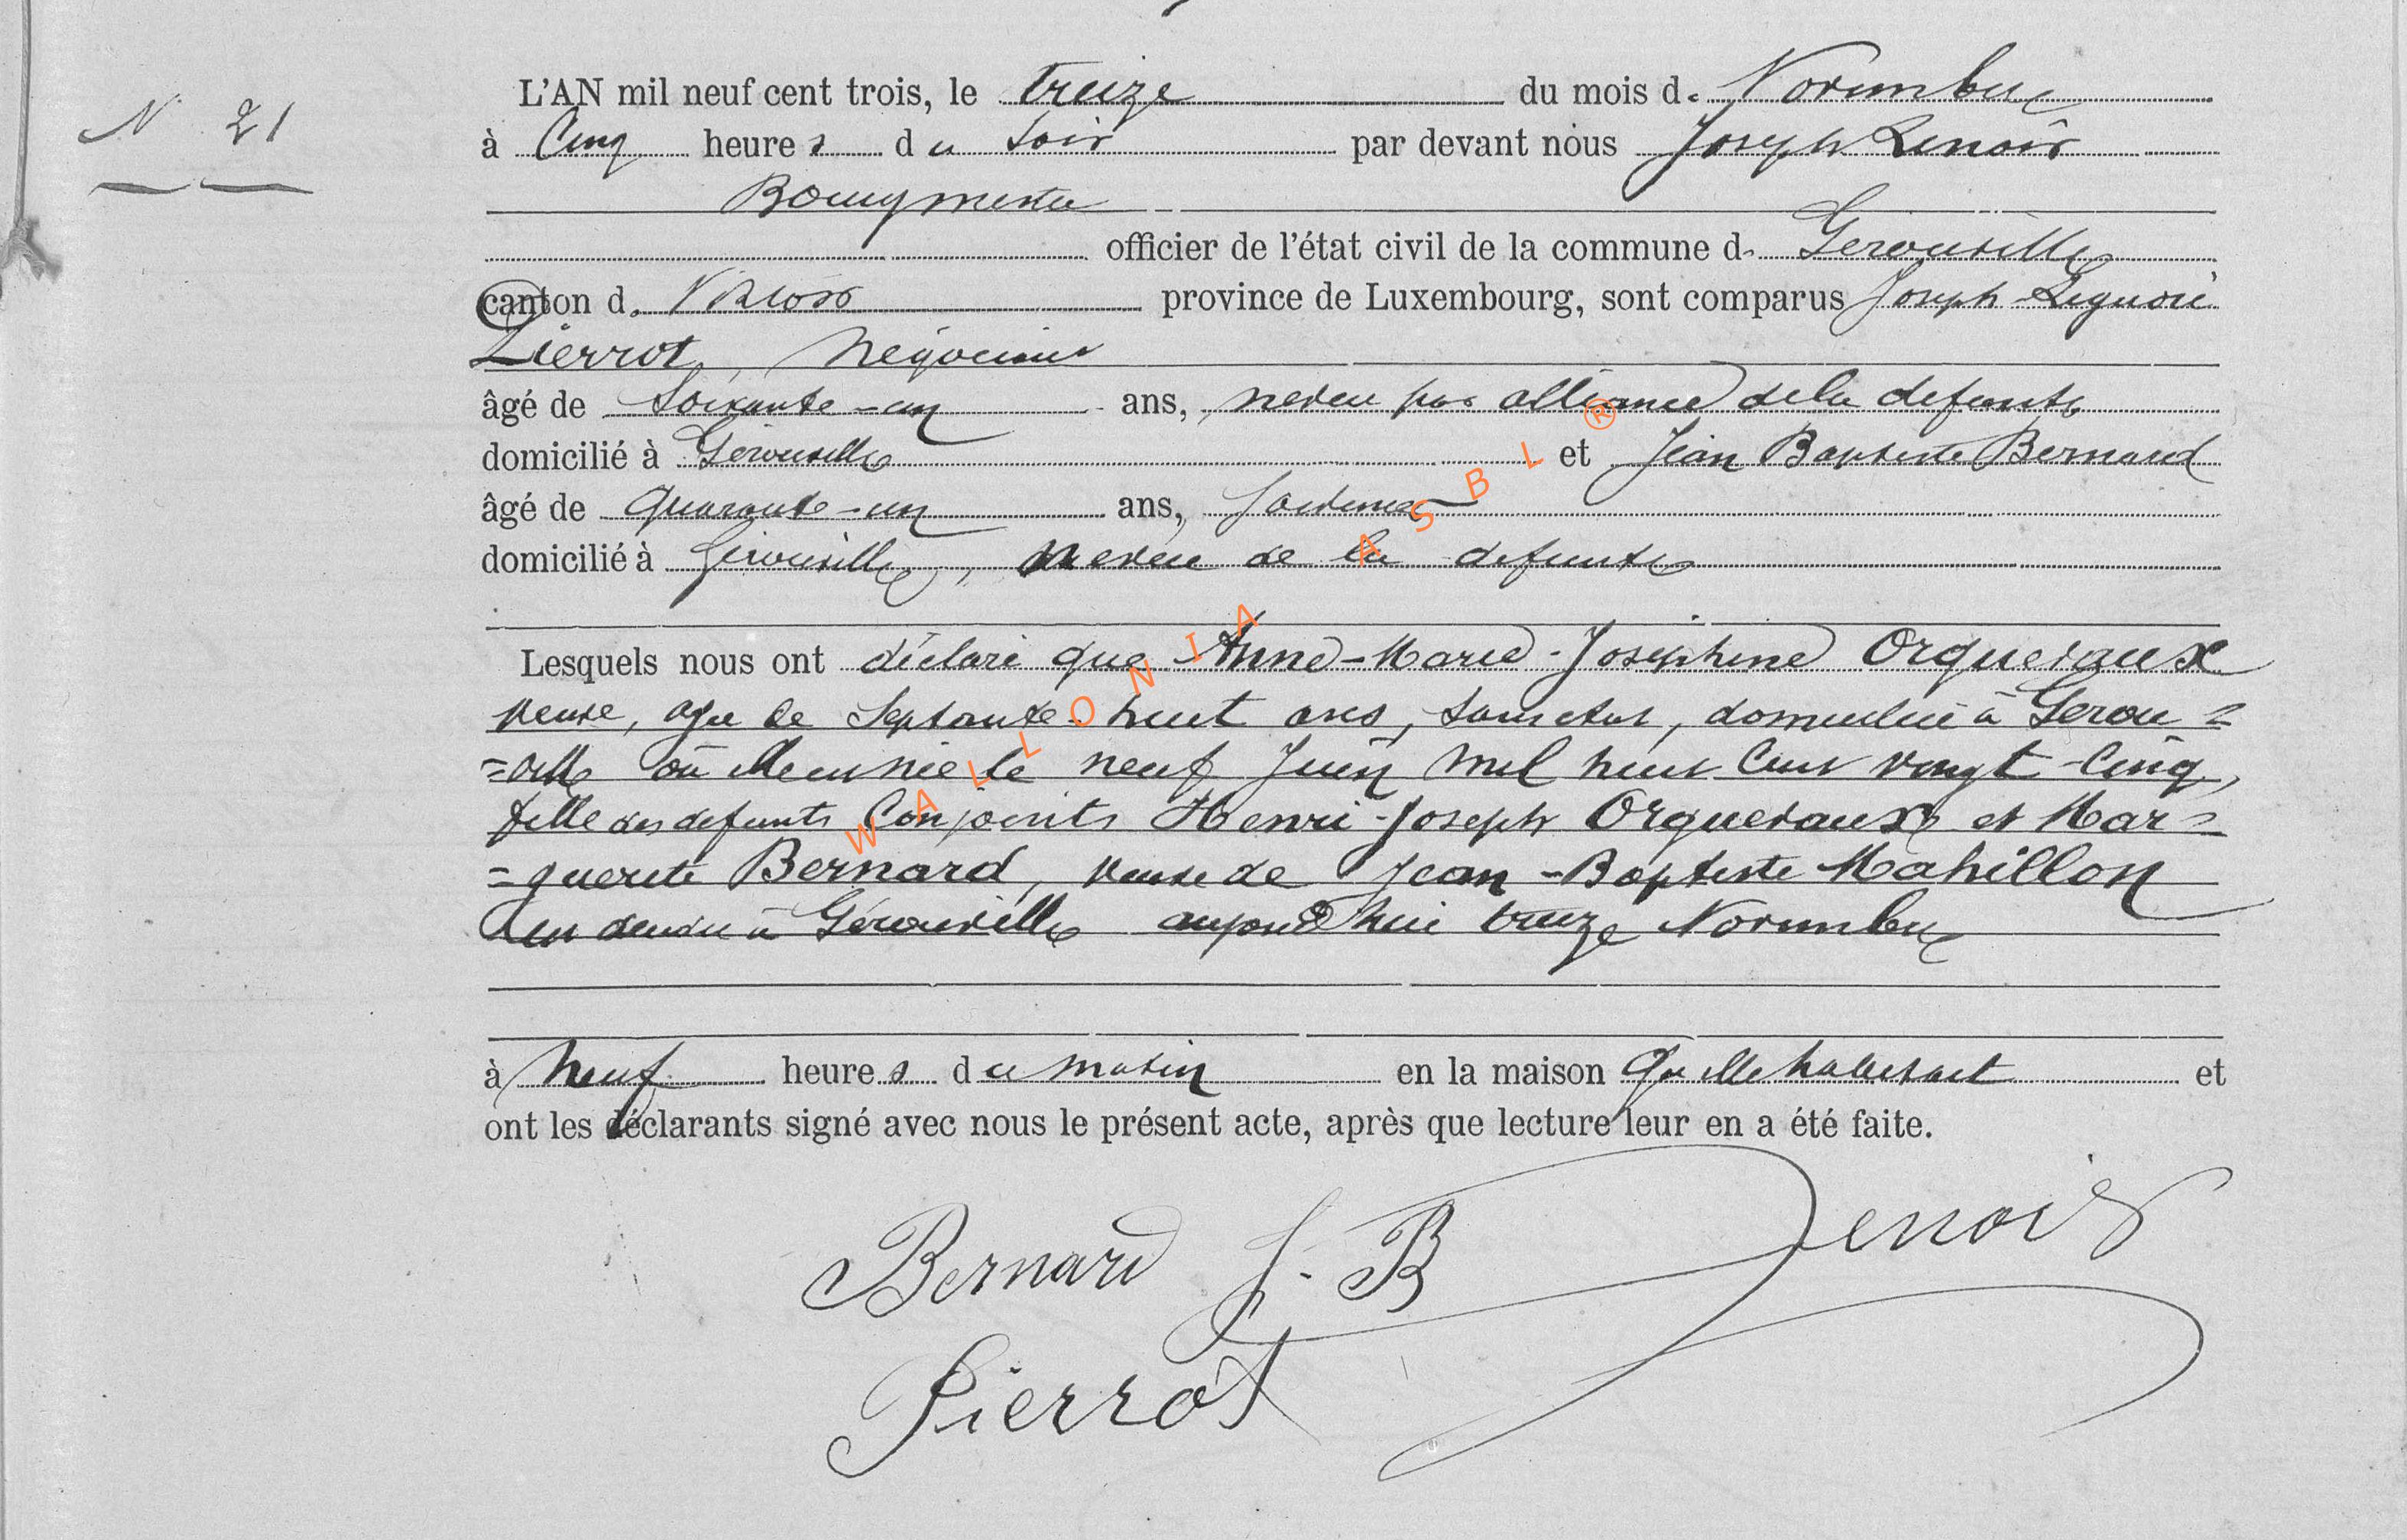 N 21
L'AN mil neuf cent trois, le treize du mois de Novembre
à cinq heures du soir par devant nous Joseph Lenoir
Bourgmestre
officier de l'état civil de la commune de Gerouville
canton de Virton province de Luxembourg, sont comparus Joseph Liguori
Pierrot, négociant
âgé de soixante-un ans, neveu par alliance de la defunte
domicilié à Gérouville et Jean Baptiste Bernard
âgé de quarante-un ans,
domicilié à Gérouville, neveu de la defunte
Lesquels nous ont déclaré que Anne-Marie-Joséphine Orquevaux
veuve, agée de septante-huit ans, sans état, domiciliée à Gerou=
=ville où elle est née le neuf Juin mil huit cent vingt-cinq,
fille des defunts conjoints Henri-Joseph Orquevaux et Mar=
=guerite Bernard, veuve de Jean-Baptiste Mahillon
est décédée à Gérouville aujourd'hui treize Novembre
à neuf heures du matin en la maison qu'elle habitait et
ont les déclarants signé avec nous le présent acte, après que lecture leur en a été faite.
Bernard J.-B Lenoir
Pierrot
WALLONIA ASBL ®